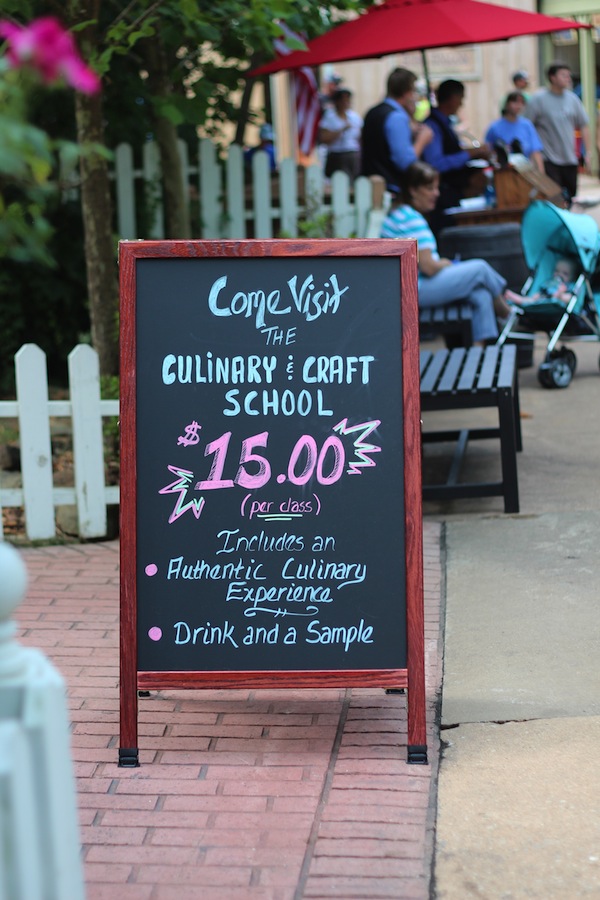 Come Visit
THE
CULINARY & CRAFT
SCHOOL
$15.00
(per class)
Includes an
• Authentic Culinary
Experience
• Drink and a Sample